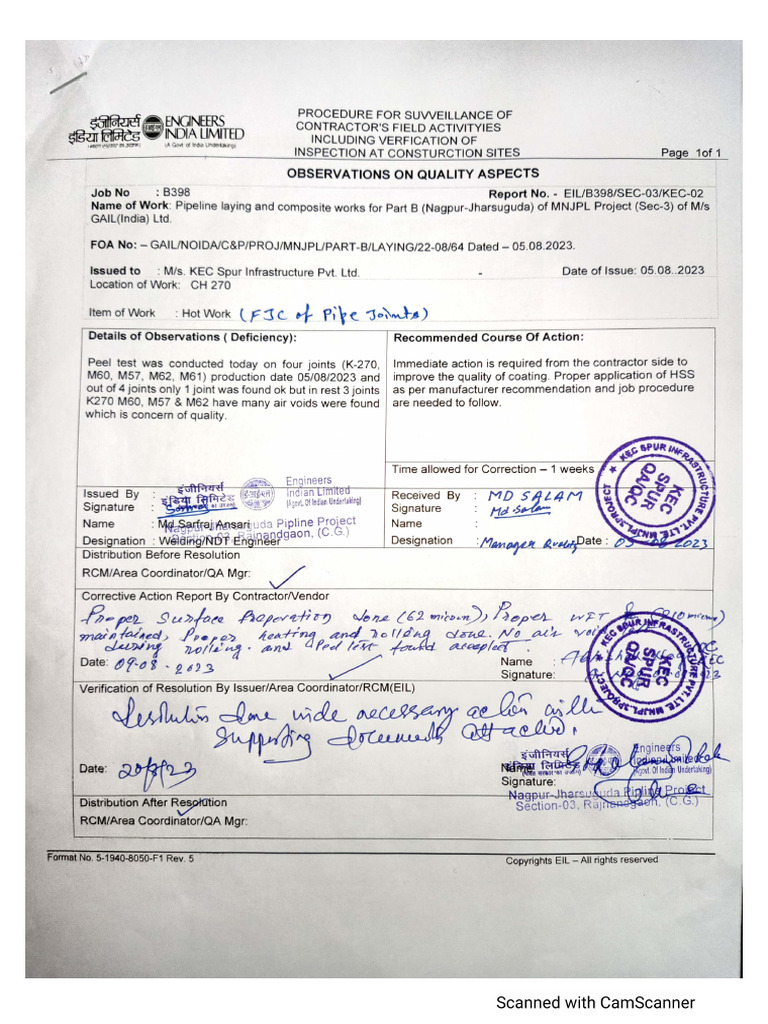 इंजीनियर्स
इंडिया लिमिटेड
ENGINEERS
INDIA LIMITED
(A Govt of India Undertaking)
PROCEDURE FOR SUVVEILLANCE OF
CONTRACTOR'S FIELD ACTIVITYIES
INCLUDING VERFICATION OF
INSPECTION AT CONSTURCTION SITES
Page 1of 1
OBSERVATIONS ON QUALITY ASPECTS
Job No : B398
Report No. - EIL/B398/SEC-03/KEC-02
Name of Work: Pipeline laying and composite works for Part B (Nagpur-Jharsuguda) of MNJPL Project (Sec-3) of M/s
GAIL(India) Ltd.
FOA No: – GAIL/NOIDA/C&P/PROJ/MNJPL/PART-B/LAYING/22-08/64 Dated – 05.08.2023.
Issued to : M/s. KEC Spur Infrastructure Pvt. Ltd. - Date of Issue: 05.08..2023
Location of Work: CH 270
Item of Work : Hot Work (FJC of Pipe Joints)
Details of Observations ( Deficiency):
Peel test was conducted today on four joints (K-270,
M60, M57, M62, M61) production date 05/08/2023 and
out of 4 joints only 1 joint was found ok but in rest 3 joints
K270 M60, M57 & M62 have many air voids were found
which is concern of quality.
Recommended Course Of Action:
Immediate action is required from the contractor side to
improve the quality of coating. Proper application of HSS
as per manufacturer recommendation and job procedure
are needed to follow.
Time allowed for Correction – 1 weeks
Issued By :
Signature :
Name : Md Sarfraj Ansari
Designation : Welding/NDT Engineer
इंजीनियर्स
इंडिया लिमिटेड
Engineers
Indian Limited
(Agovt. Of Indian Undertaking)
Nagpur-Jharsuguda Pipline Project
Section-03, Rajnandgaon, (C.G.)
Received By : MD SALAM
Signature : Md Salam
Name :
Designation : Manager Quality Date : 05-08-2023
KEC SPUR INFRASTRUCTURE PVT. LTE. MNJPL.3PROJECT
KEC
SPUR
QA/QC
Distribution Before Resolution
RCM/Area Coordinator/QA Mgr:
Corrective Action Report By Contractor/Vendor
Proper Surface Preparation done (62 micron), Proper WFT
maintained, Proper heating and rolling done. No air void
during rolling. and Peel test found accept.
Date: 09-08-2023
Name :
Signature:
KEC SPUR INFRASTRUCTURE PVT. LTE. MNJPL.3PROJECT
KEC
SPUR
Verification of Resolution By Issuer/Area Coordinator/RCM(EIL)
Resolution done vide necessary action with
supporting documents attached.
Date: 20/8/23
Name
Signature:
इंजीनियर्स
इंडिया लिमिटेड
Engineers
Indian Limited
(Agovt. Of Indian Undertaking)
Nagpur-Jharsuguda Pipline Project
Section-03, Rajnandgaon, (C.G.)
Distribution After Resolution
RCM/Area Coordinator/QA Mgr:
Format No. 5-1940-8050-F1 Rev. 5
Copyrights EIL – All rights reserved
Scanned with CamScanner